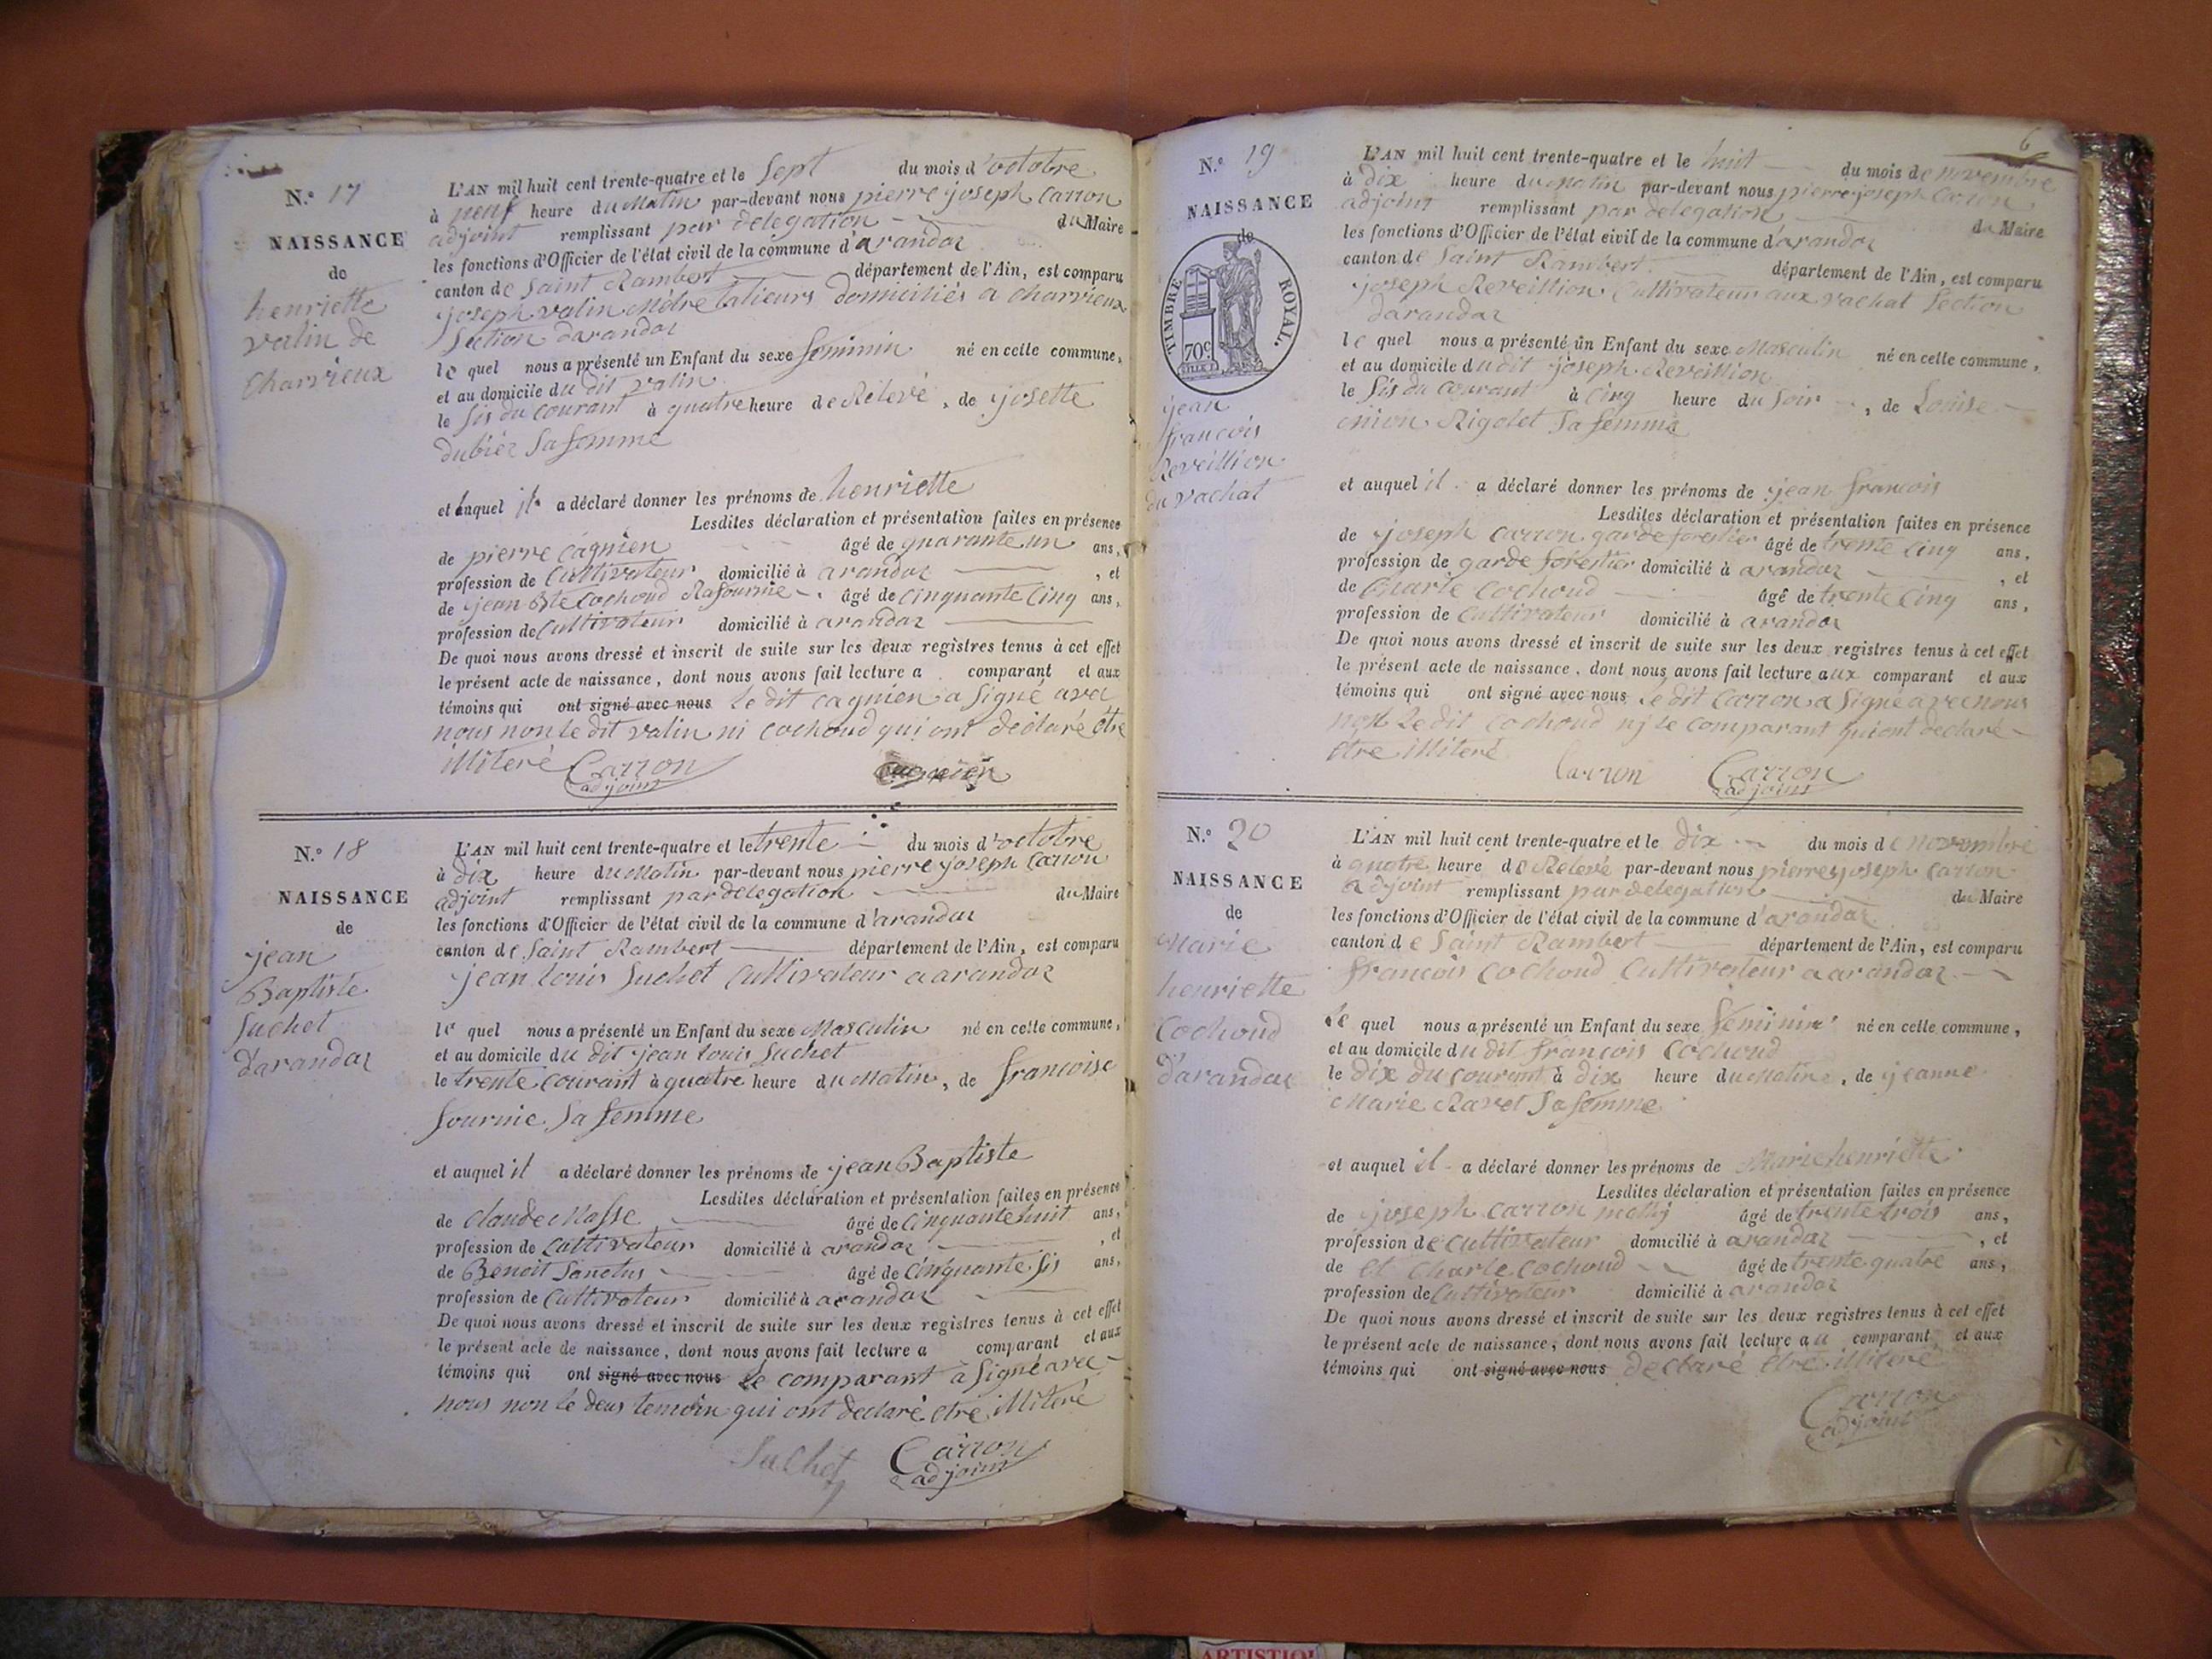 N.° 17
NAISSANCE
de
henriette
valin de
Charvieux
L'AN mil huit cent trente-quatre et le sept du mois d'octobre
à neuf heure du Matin par-devant nous pierre joseph Carron
adjoint remplissant par delegation du Maire
les fonctions d'Officier de l'état civil de la commune d'arandas
canton de Saint Rambert département de l'Ain, est comparu
joseph valin domiciliés a charvieux
Section darandas
le quel nous a présenté un Enfant du sexe feminin né en celle commune,
et au domicile du dit valin
le sis du courant à quatre heure de Relevé, de josette
dubiez sa femme
et auquel il a déclaré donner les prénoms de henriette
Lesdites déclaration et présentation faites en présence
de pierre cagnien âgé de quarante un ans,
profession de Cultivateur domicilié à arandas, et
de jean Bte Cochoud Rafournie âgé de cinquante cinq ans,
profession de Cultivateur domicilié à arandas
De quoi nous avons dressé et inscrit de suite sur les deux registres tenus à cet effet
le présent acte de naissance, dont nous avons fait lecture a comparant et aux
témoins qui ont signé avec nous le dit cagnien a signé avec
nous non le dit valin ni cochoud qui ont declaré etre
illiteré Carron
adjoint
cagnien
N.° 18
NAISSANCE
de
jean
Baptiste
Suchet
d'arandas
L'AN mil huit cent trente-quatre et le trente du mois d'octobre
à dix heure du Matin par-devant nous pierre joseph Carron
adjoint remplissant par delegation du Maire
les fonctions d'Officier de l'état civil de la commune d'arandas
canton de Saint Rambert département de l'Ain, est comparu
jean louis Suchet Cultivateur a arandas
le quel nous a présenté un Enfant du sexe Masculin né en celle commune,
et au domicile du dit jean louis Suchet
le trente courant à quatre heure du Matin, de francoise
fournie sa femme
et auquel il a déclaré donner les prénoms de jean Baptiste
Lesdites déclaration et présentation faites en présence
de claude Masse âgé de cinquante huit ans,
profession de Cultivateur domicilié à arandas, et
de Benoit Sanctus âgé de cinquante sis ans,
profession de Cultivateur domicilié à arandas
De quoi nous avons dressé et inscrit de suite sur les deux registres tenus à cet effet
le présent acte de naissance, dont nous avons fait lecture a comparant et aux
témoins qui ont signé avec nous le comparant à signé avec
nous non le deus temoin qui ont declaré etre illiteré
Suchet Carron
adjoint
6
N.° 19
NAISSANCE
de
TIMBRE ROYAL.
70c
jean
francois
Reveillion
du vachat
L'AN mil huit cent trente-quatre et le huit du mois de novembre
à dix heure du Matin par-devant nous pierre joseph Carron
adjoint remplissant par delegation du Maire
les fonctions d'Officier de l'état civil de la commune d'arandas
canton de Saint Rambert département de l'Ain, est comparu
joseph Reveillion Cultivateur aux vachat Section
darandas
le quel nous a présenté un Enfant du sexe Masculin né en celle commune,
et au domicile du dit joseph Reveillion
le sis du courant à cinq heure du soir, de Louise
Rigolet sa femme
et auquel il a déclaré donner les prénoms de jean francois
Lesdites déclaration et présentation faites en présence
de joseph Carron garde forestier âgé de trente cinq ans,
profession de garde forestier domicilié à arandas, et
de Charle Cochoud âgé de trente cinq ans,
profession de Cultivateur domicilié à arandas
De quoi nous avons dressé et inscrit de suite sur les deux registres tenus à cet effet
le présent acte de naissance, dont nous avons fait lecture aux comparant et aux
témoins qui ont signé avec nous le dit Carron a signé avec nous
non le dit Cochoud nj le comparant qui ont declaré
etre illiteré
Carron Carron
adjoint
N.° 20
NAISSANCE
de
Marie
henriette
Cochoud
d'arandas
L'AN mil huit cent trente-quatre et le dix du mois de novembre
à quatre heure de Relevé par-devant nous pierre joseph Carron
adjoint remplissant par delegation du Maire
les fonctions d'Officier de l'état civil de la commune d'arandas
canton de Saint Rambert département de l'Ain, est comparu
francois Cochoud Cultivateur a arandas
le quel nous a présenté un Enfant du sexe feminin né en celle commune,
et au domicile du dit francois Cochoud
le dix du courant à dix heure du Matin, de jeanne
Marie Ravet sa femme
et auquel il a déclaré donner les prénoms de Marie henriette
Lesdites déclaration et présentation faites en présence
de joseph Carron âgé de trente trois ans,
profession de Cultivateur domicilié à arandas, et
de et Charle Cochoud âgé de trente quatre ans,
profession de Cultivateur domicilié à arandas
De quoi nous avons dressé et inscrit de suite sur les deux registres tenus à cet effet
le présent acte de naissance, dont nous avons fait lecture au comparant et aux
témoins qui ont signé avec nous declaré etre illiteré
Carron
adjoint